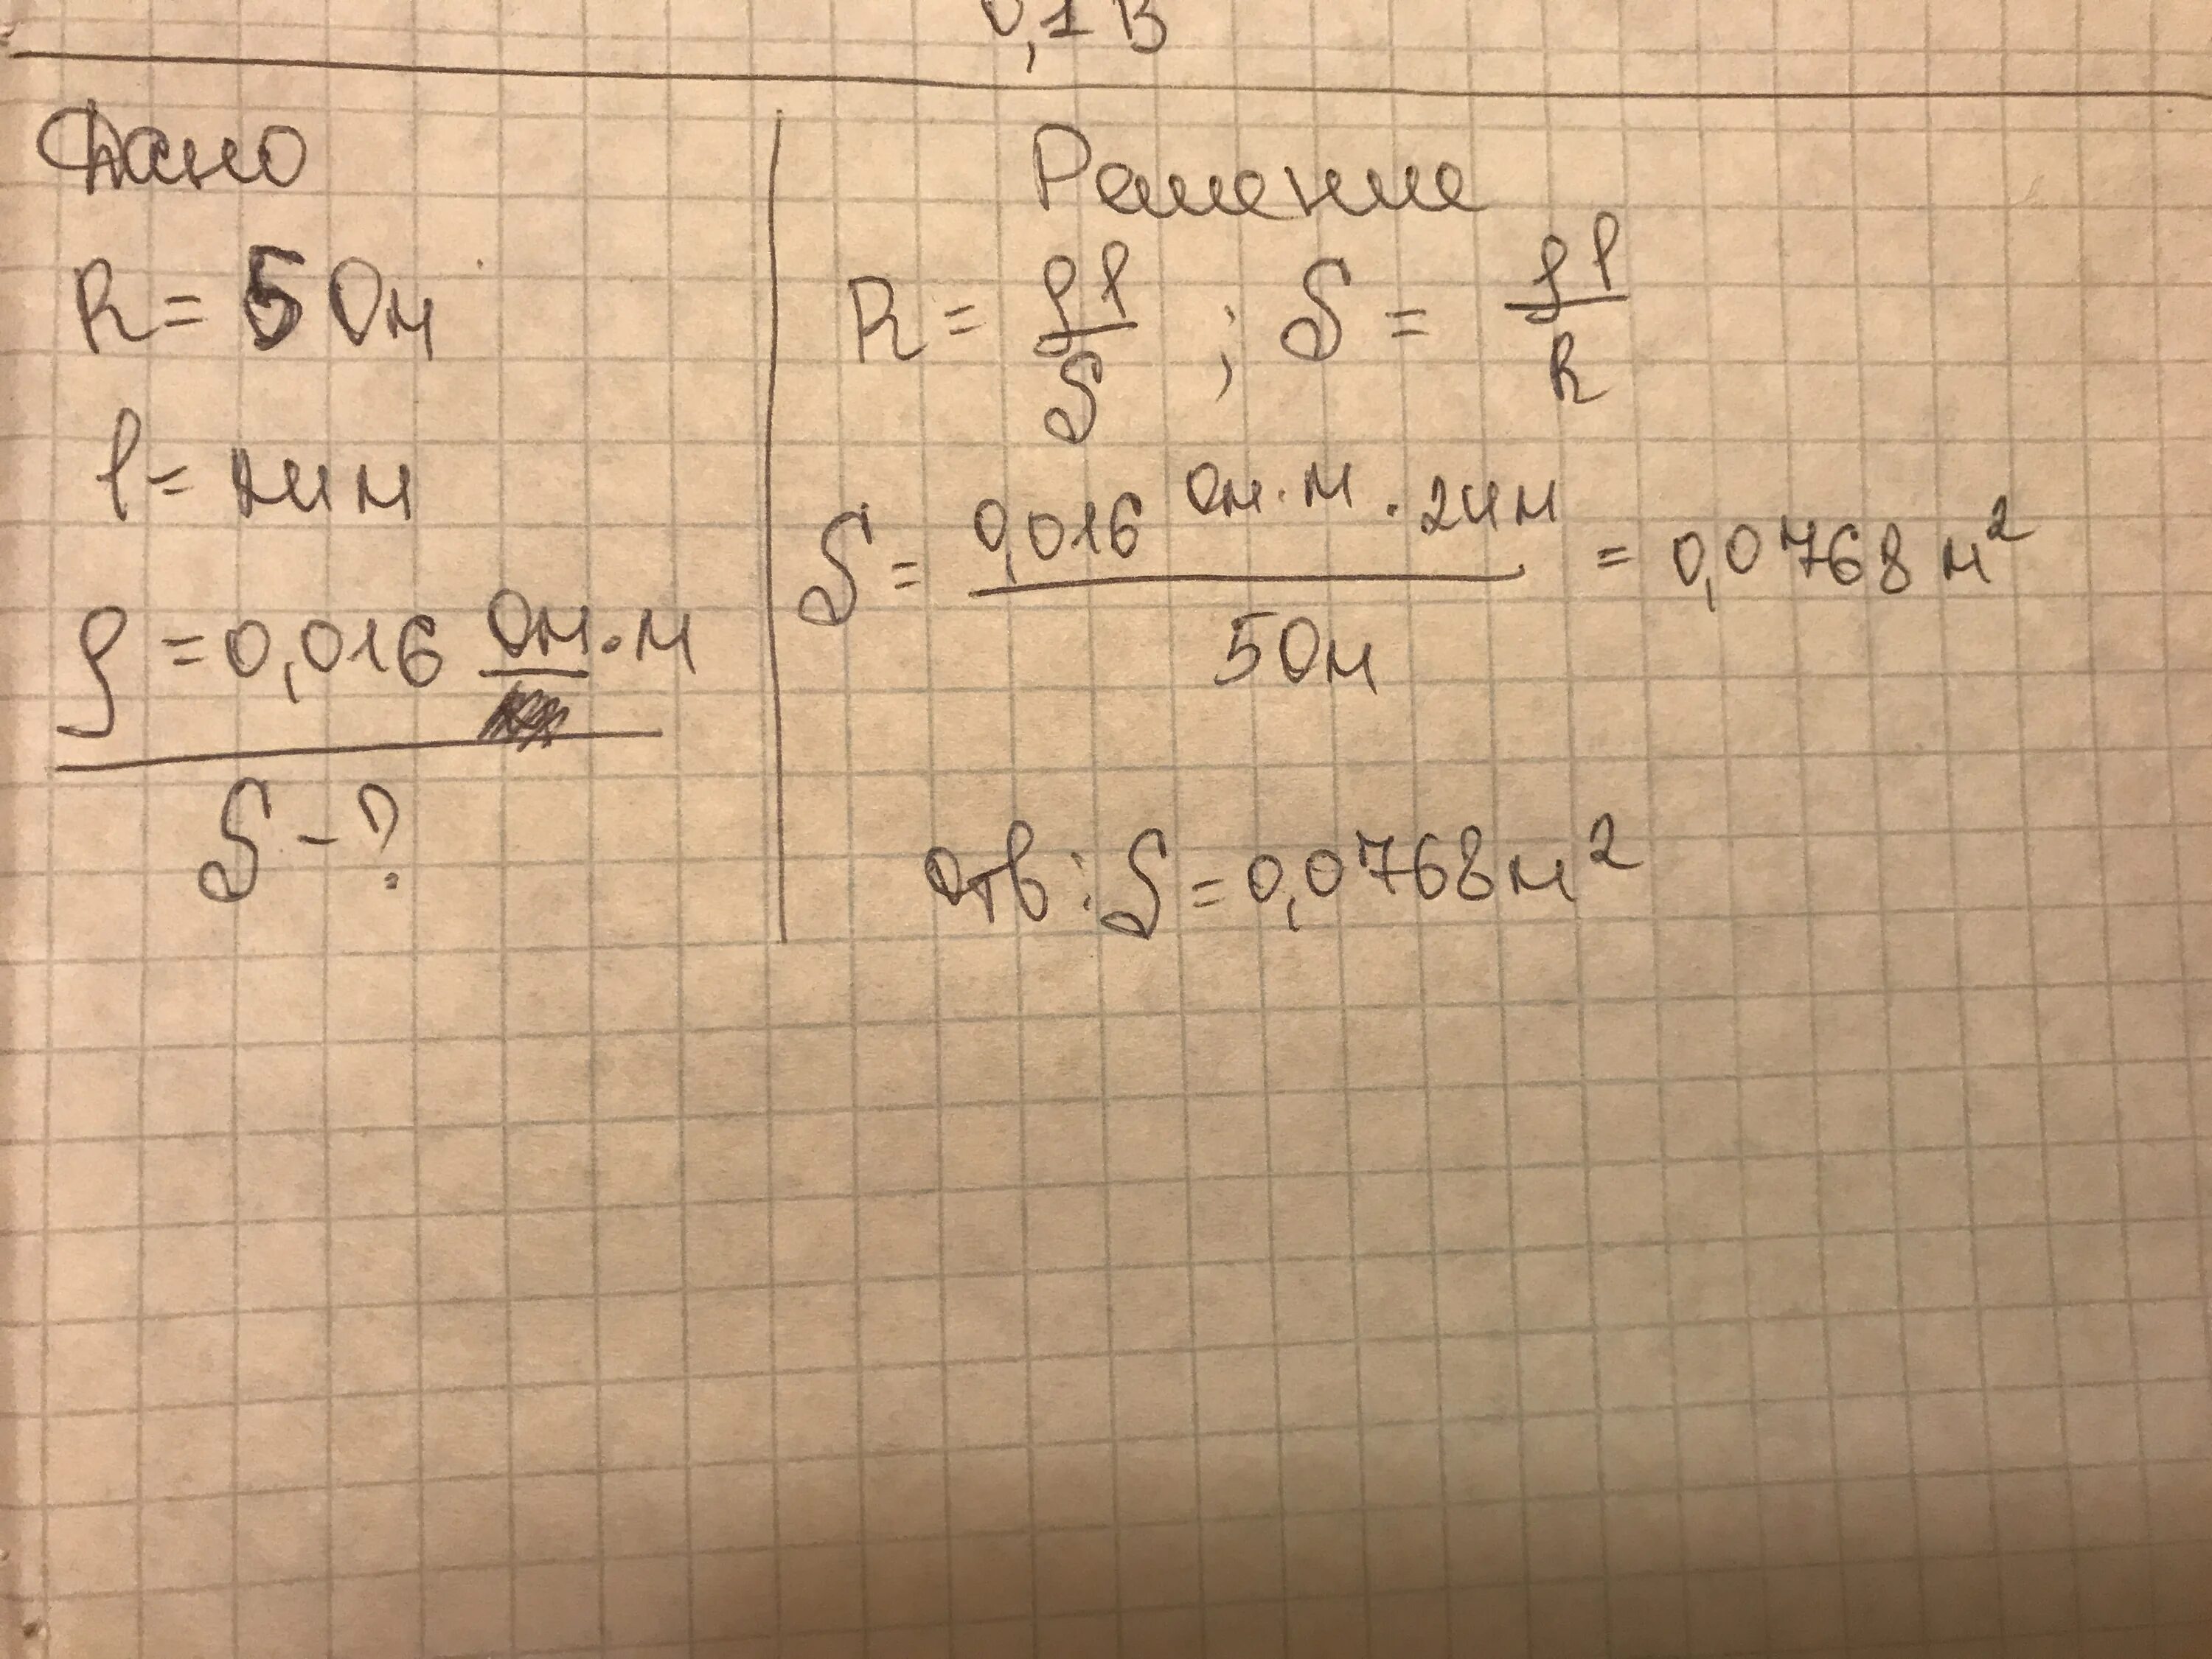 0,1 В
Дано
R = 5 Ом
l = м
ρ = 0,016 Ом · м
S - ?
Решение
R = ρl / S ; S = ρl / R
S = 0,016 Ом · м · 24м / 5 Ом = 0,0768 м²
Отв : S = 0,0768 м²